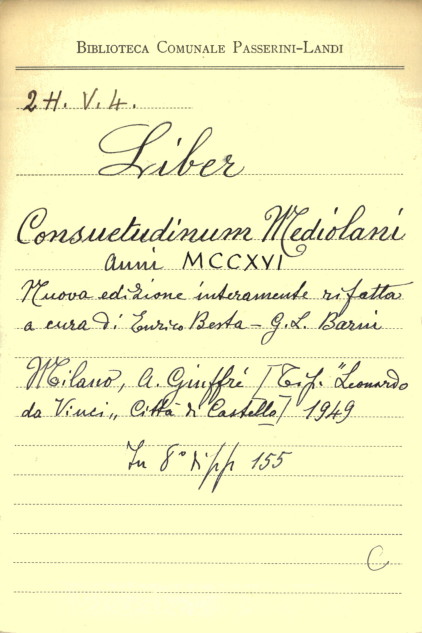 BIBLIOTECA COMUNALE PASSERINI-LANDI
2H. V. 4.
Liber
Consuetudinum Mediolani
anni MCCXVI
Nuova edizione interamente rifatta
a cura di Enrico Besta - G. L. Barni
Milano, A. Giuffré [Tip. "Leonardo
da Vinci" Città di Castello] 1949
In 8° di pp 155
C